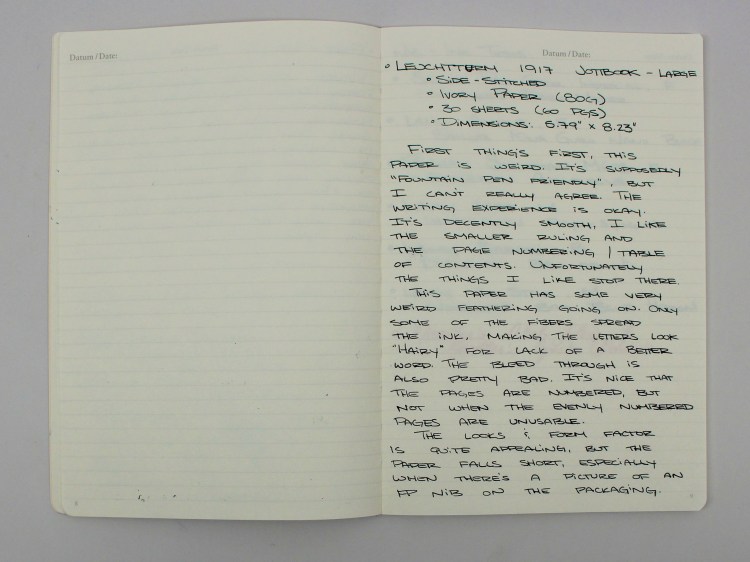 Datum / Date:
Datum / Date:
• LEUCHTTURM 1917 JOTTBOOK - LARGE
• SIDE-STITCHED
• IVORY PAPER (80G)
• 30 SHEETS (60 PGS)
• DIMENSIONS: 5.79" x 8.23"
FIRST THINGS FIRST, THIS
PAPER IS WEIRD. IT'S SUPPOSEDLY
"FOUNTAIN PEN FRIENDLY", BUT
I CAN'T REALLY AGREE. THE
WRITING EXPERIENCE IS OKAY.
IT'S DECENTLY SMOOTH, I LIKE
THE SMALLER RULING AND
THE PAGE NUMBERING / TABLE
OF CONTENTS. UNFORTUNATELY
THE THINGS I LIKE STOP THERE.
THIS PAPER HAS SOME VERY
WEIRD FEATHERING GOING ON. ONLY
SOME OF THE FIBERS SPREAD
THE INK, MAKING THE LETTERS LOOK
"HAIRY" FOR LACK OF A BETTER
WORD. THE BLEED THROUGH IS
ALSO PRETTY BAD. IT'S NICE THAT
THE PAGES ARE NUMBERED, BUT
NOT WHEN THE EVENLY NUMBERED
PAGES ARE UNUSABLE.
THE LOOKS & FORM FACTOR
IS QUITE APPEALING, BUT THE
PAPER FALLS SHORT, ESPECIALLY
WHEN THERE'S A PICTURE OF AN
FP NIB ON THE PACKAGING.